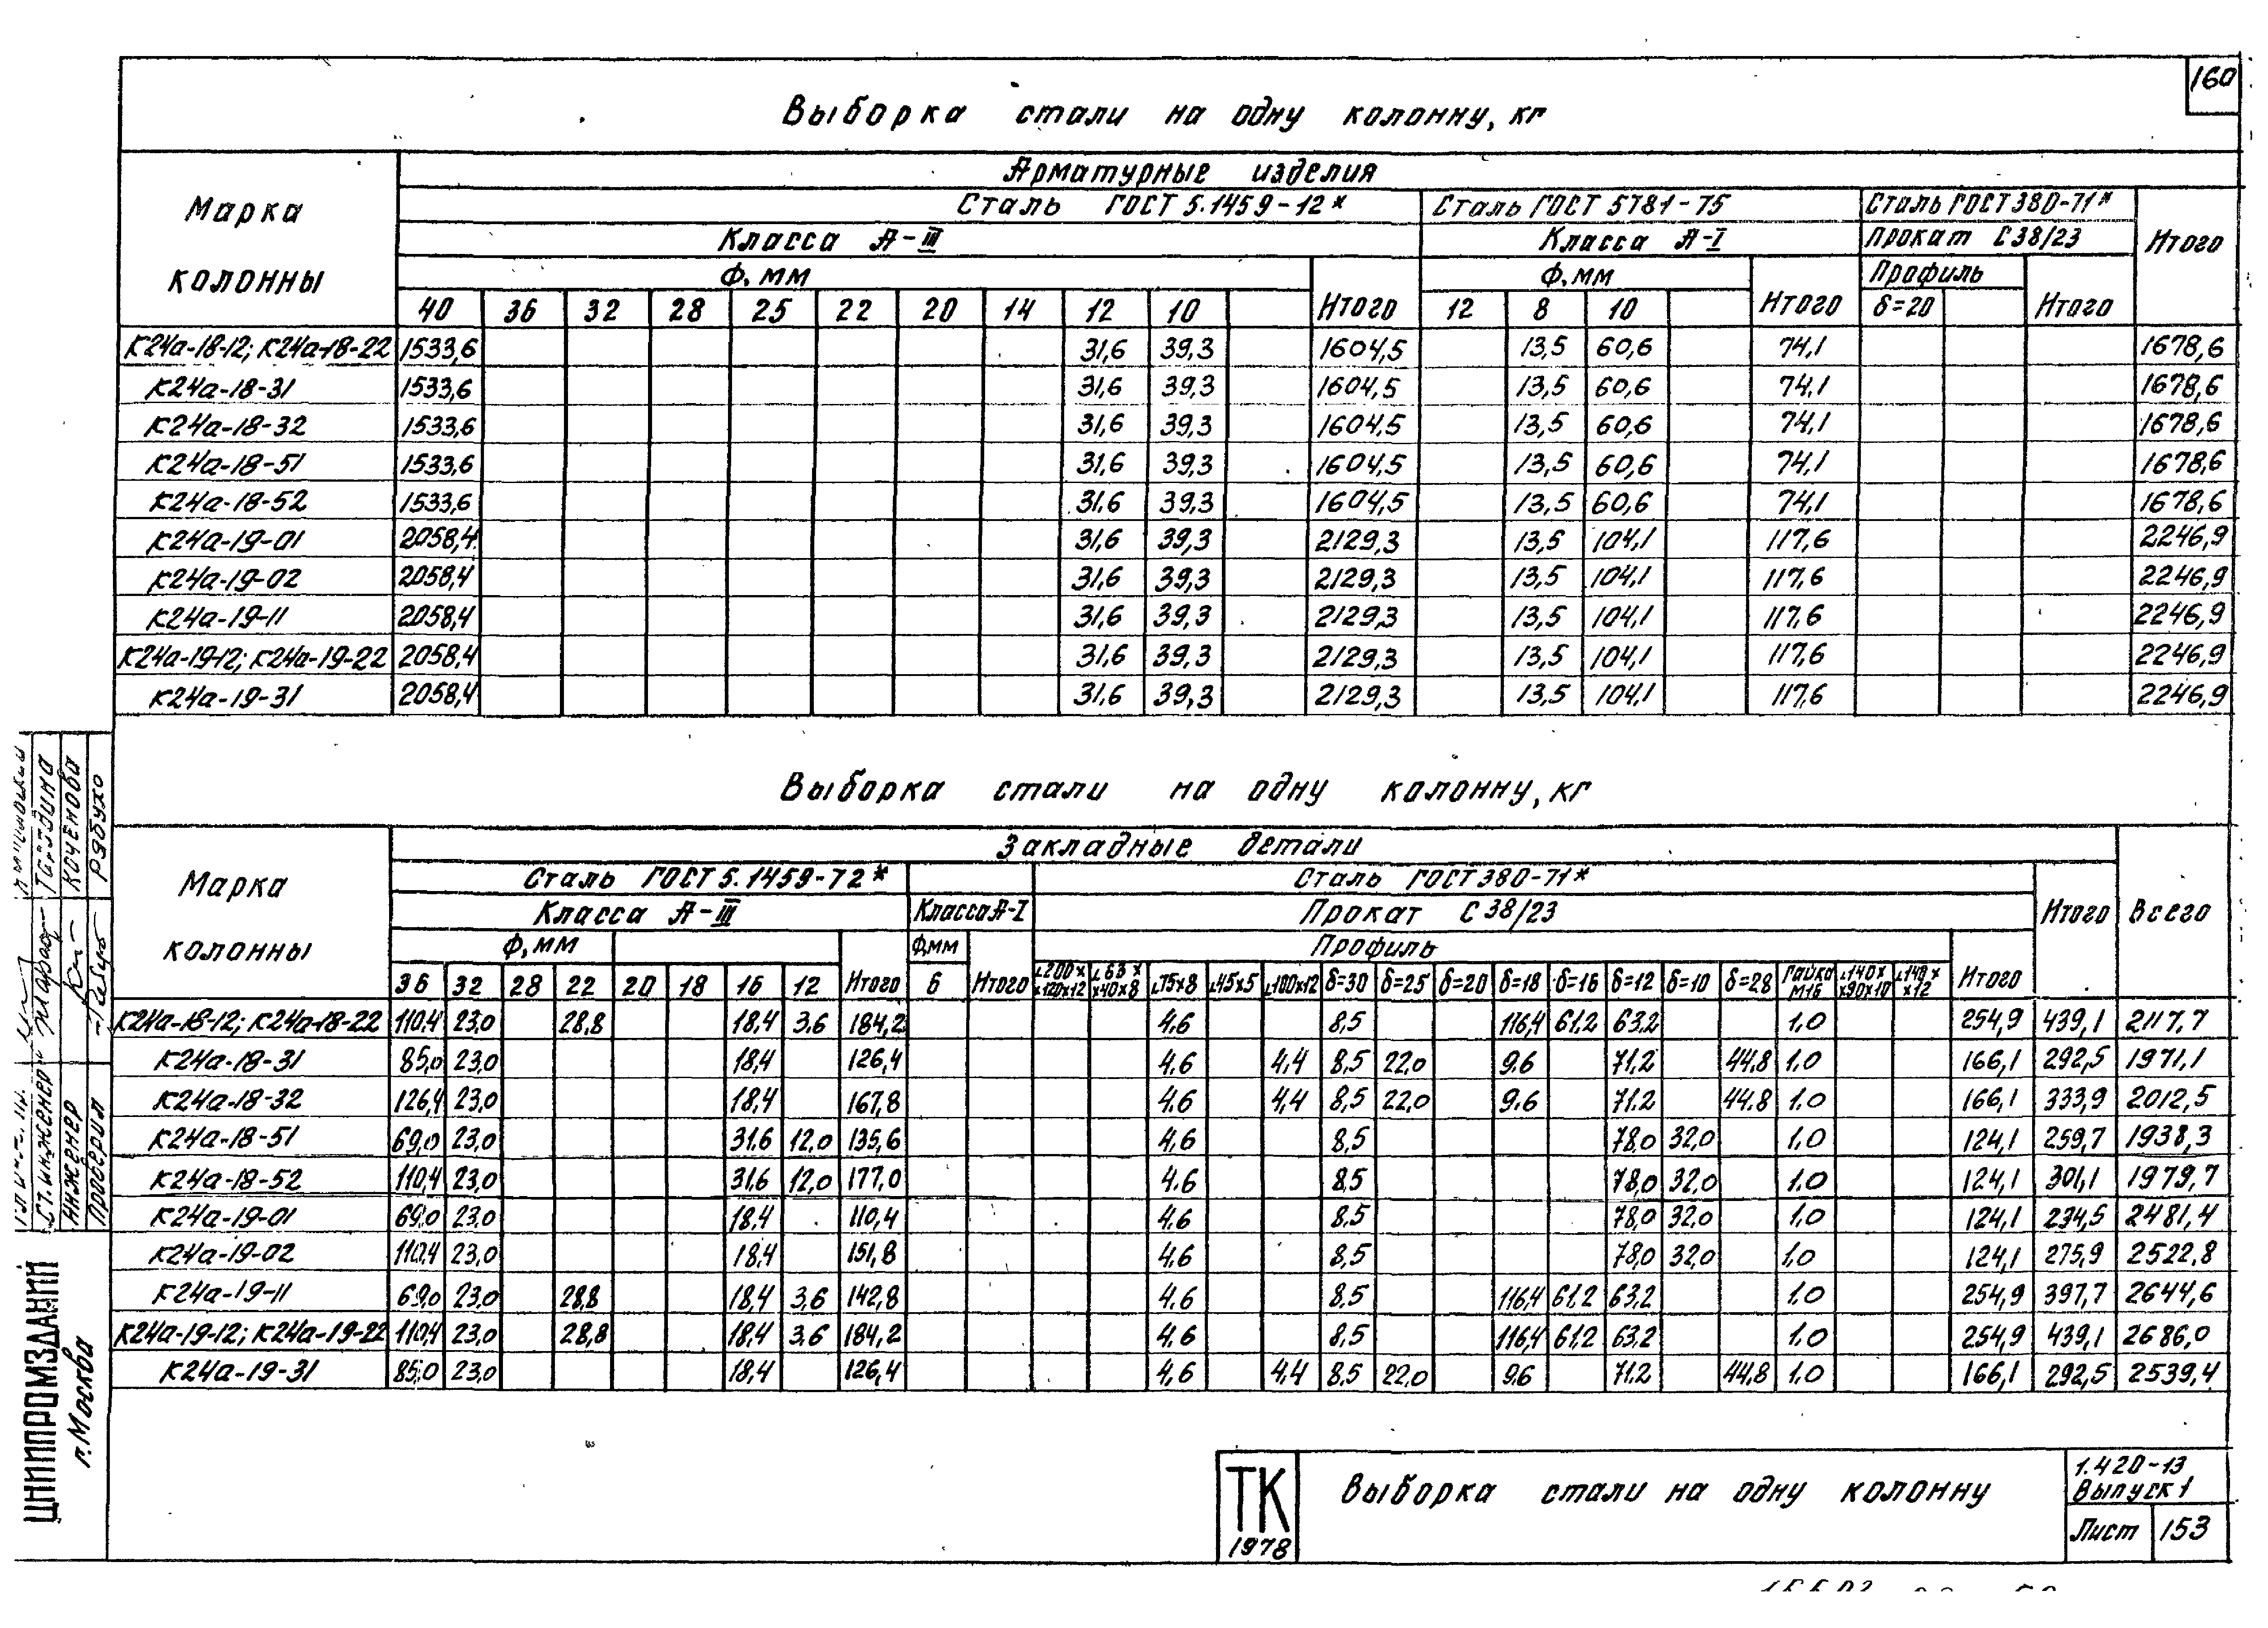 160
Выборка стали на одну колонну, кг
Марка колонны
Арматурные изделия
Сталь ГОСТ 5.1459-12* Сталь ГОСТ 5781-75 Сталь ГОСТ 380-71* Итого
Класса А-III Класса А-I Прокат С 38/23
Ф, мм Итого Ф, мм Итого Профиль Итого
40 36 32 28 25 22 20 14 12 10 12 8 10 δ=20
К24а-18-12; К24а-18-22 1533,6 31,6 39,3 1604,5 13,5 60,6 74,1 1678,6
К24а-18-31 1533,6 31,6 39,3 1604,5 13,5 60,6 74,1 1678,6
К24а-18-32 1533,6 31,6 39,3 1604,5 13,5 60,6 74,1 1678,6
К24а-18-51 1533,6 31,6 39,3 1604,5 13,5 60,6 74,1 1678,6
К24а-18-52 1533,6 31,6 39,3 1604,5 13,5 60,6 74,1 1678,6
К24а-19-01 2058,4 31,6 39,3 2129,3 13,5 104,1 117,6 2246,9
К24а-19-02 2058,4 31,6 39,3 2129,3 13,5 104,1 117,6 2246,9
К24а-19-11 2058,4 31,6 39,3 2129,3 13,5 104,1 117,6 2246,9
К24а-19-12; К24а-19-22 2058,4 31,6 39,3 2129,3 13,5 104,1 117,6 2246,9
К24а-19-31 2058,4 31,6 39,3 2129,3 13,5 104,1 117,6 2246,9
Выборка стали на одну колонну, кг
Марка колонны
Закладные детали Всего
Сталь ГОСТ 5.1459-72* Сталь ГОСТ 380-71* Итого
Класса А-III Класса А-I Прокат С 38/23
Ф, мм Итого Ф,мм Итого Профиль Итого
36 32 28 22 20 18 16 12 6 ∟200××120×12 ∟63××40×8 ∟75×8 ∟45×5 ∟100×12 δ=30 δ=25 δ=20 δ=18 δ=16 δ=12 δ=10 δ=28 Гайка М16 ∟140××90×10 ∟140××12
К24а-18-12; К24а-18-22 110,4 23,0 28,8 18,4 3,6 184,2 4,6 8,5 116,4 61,2 63,2 1,0 254,9 439,1 2117,7
К24а-18-31 85,0 23,0 18,4 126,4 4,6 4,4 8,5 22,0 9,6 71,2 44,8 1,0 166,1 292,5 1971,1
К24а-18-32 126,4 23,0 18,4 167,8 4,6 4,4 8,5 22,0 9,6 71,2 44,8 1,0 166,1 333,9 2012,5
К24а-18-51 69,0 23,0 31,6 12,0 135,6 4,6 8,5 78,0 32,0 1,0 124,1 259,7 1938,3
К24а-18-52 110,4 23,0 31,6 12,0 177,0 4,6 8,5 78,0 32,0 1,0 124,1 301,1 1979,7
К24а-19-01 69,0 23,0 18,4 110,4 4,6 8,5 78,0 32,0 1,0 124,1 234,5 2481,4
К24а-19-02 110,4 23,0 18,4 151,8 4,6 8,5 78,0 32,0 1,0 124,1 275,9 2522,8
К24а-19-11 69,0 23,0 28,8 18,4 3,6 142,8 4,6 8,5 116,4 61,2 63,2 1,0 254,9 397,7 2644,6
К24а-19-12; К24а-19-22 110,4 23,0 28,8 18,4 3,6 184,2 4,6 8,5 116,4 61,2 63,2 1,0 254,9 439,1 2686,0
К24а-19-31 85,0 23,0 18,4 126,4 4,6 4,4 8,5 22,0 9,6 71,2 44,8 1,0 166,1 292,5 2539,4
Ст. инженер
Инженер Коченова
Проверил Рябухо
ЦНИИПРОМЗДАНИЙ
г. Москва
ТК
1978
Выборка стали на одну колонну
1.420-13
Выпуск 1
Лист 153